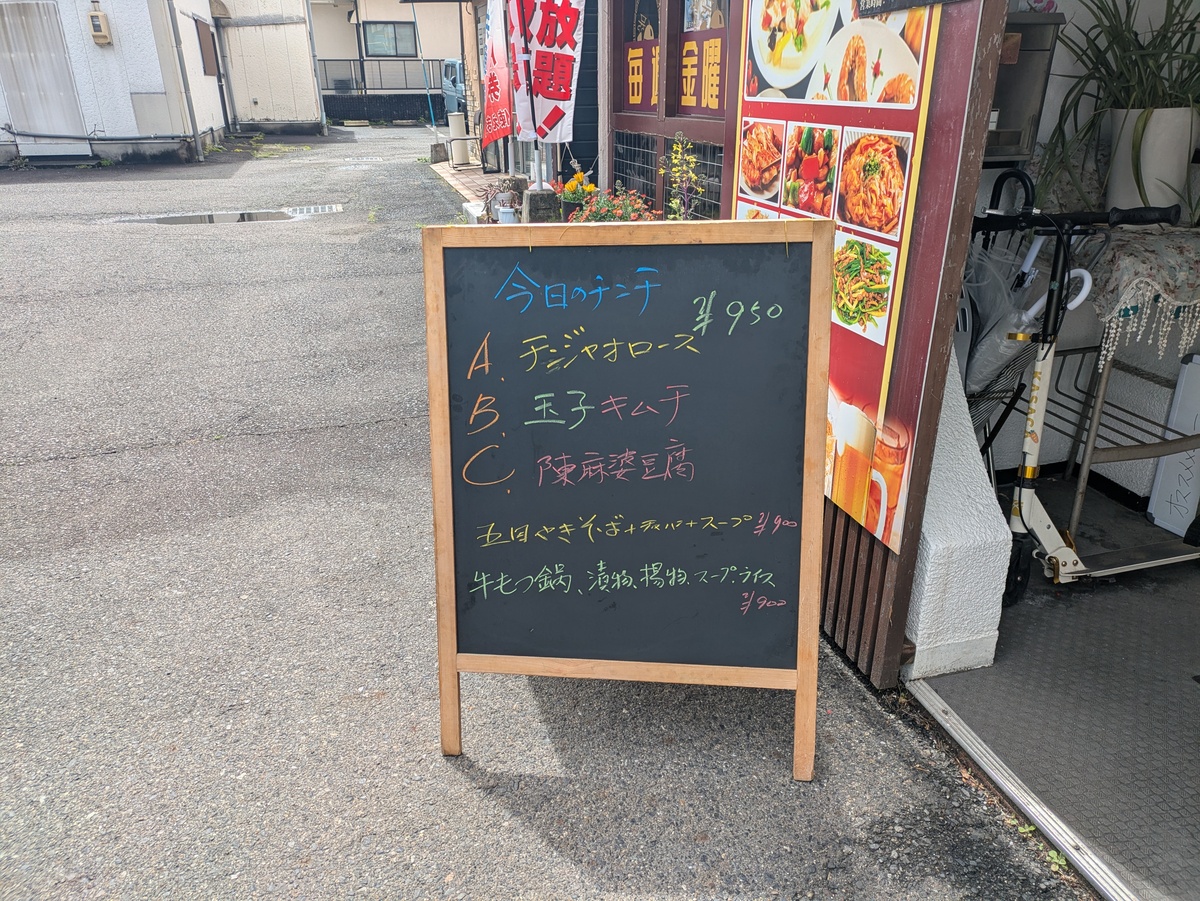 放
題!
券
毎週
金曜
今日のチンチ
¥950
A. チンジャオロース
B. 玉子キムチ
C. 陳麻婆豆腐
五目やきそば+ +スープ ¥900
牛もつ鍋、漬物、揚物、スープ、ライス
¥900
KASAC
オススメ